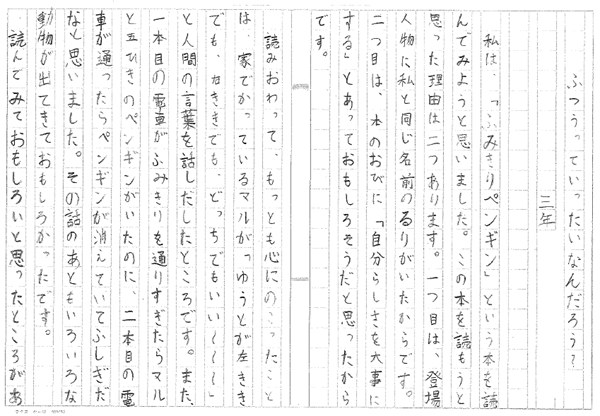 ふつうっていったいなんだろう？
三年
私は、「ふみきりペンギン」という本を読
んでみようと思いました。この本を読もうと
思った理由は二つあります。一つ目は、登場
人物に私と同じ名前のるりがいたからです。
二つ目は、本のおびに「自分らしさを大事に
する」とあっておもしろそうだと思ったから
です。
読みおわって、もっとも心にのこったこと
は、家でかっているマルがっゆうとが左きき
でも、右ききでも、どっちでもいい〜〜〜」
と人間の言葉を話しだしたところです。また、
一本目の電車がふみきりを通りすぎたらマル
と五ひきのペンギンがいたのに、二本目の電
車が通ったらペンギンが消えていてふしぎだ
なと思いました。その話のあともいろいろな
動物が出てきておもしろかったです。
読んでみておもしろいと思ったところがあ